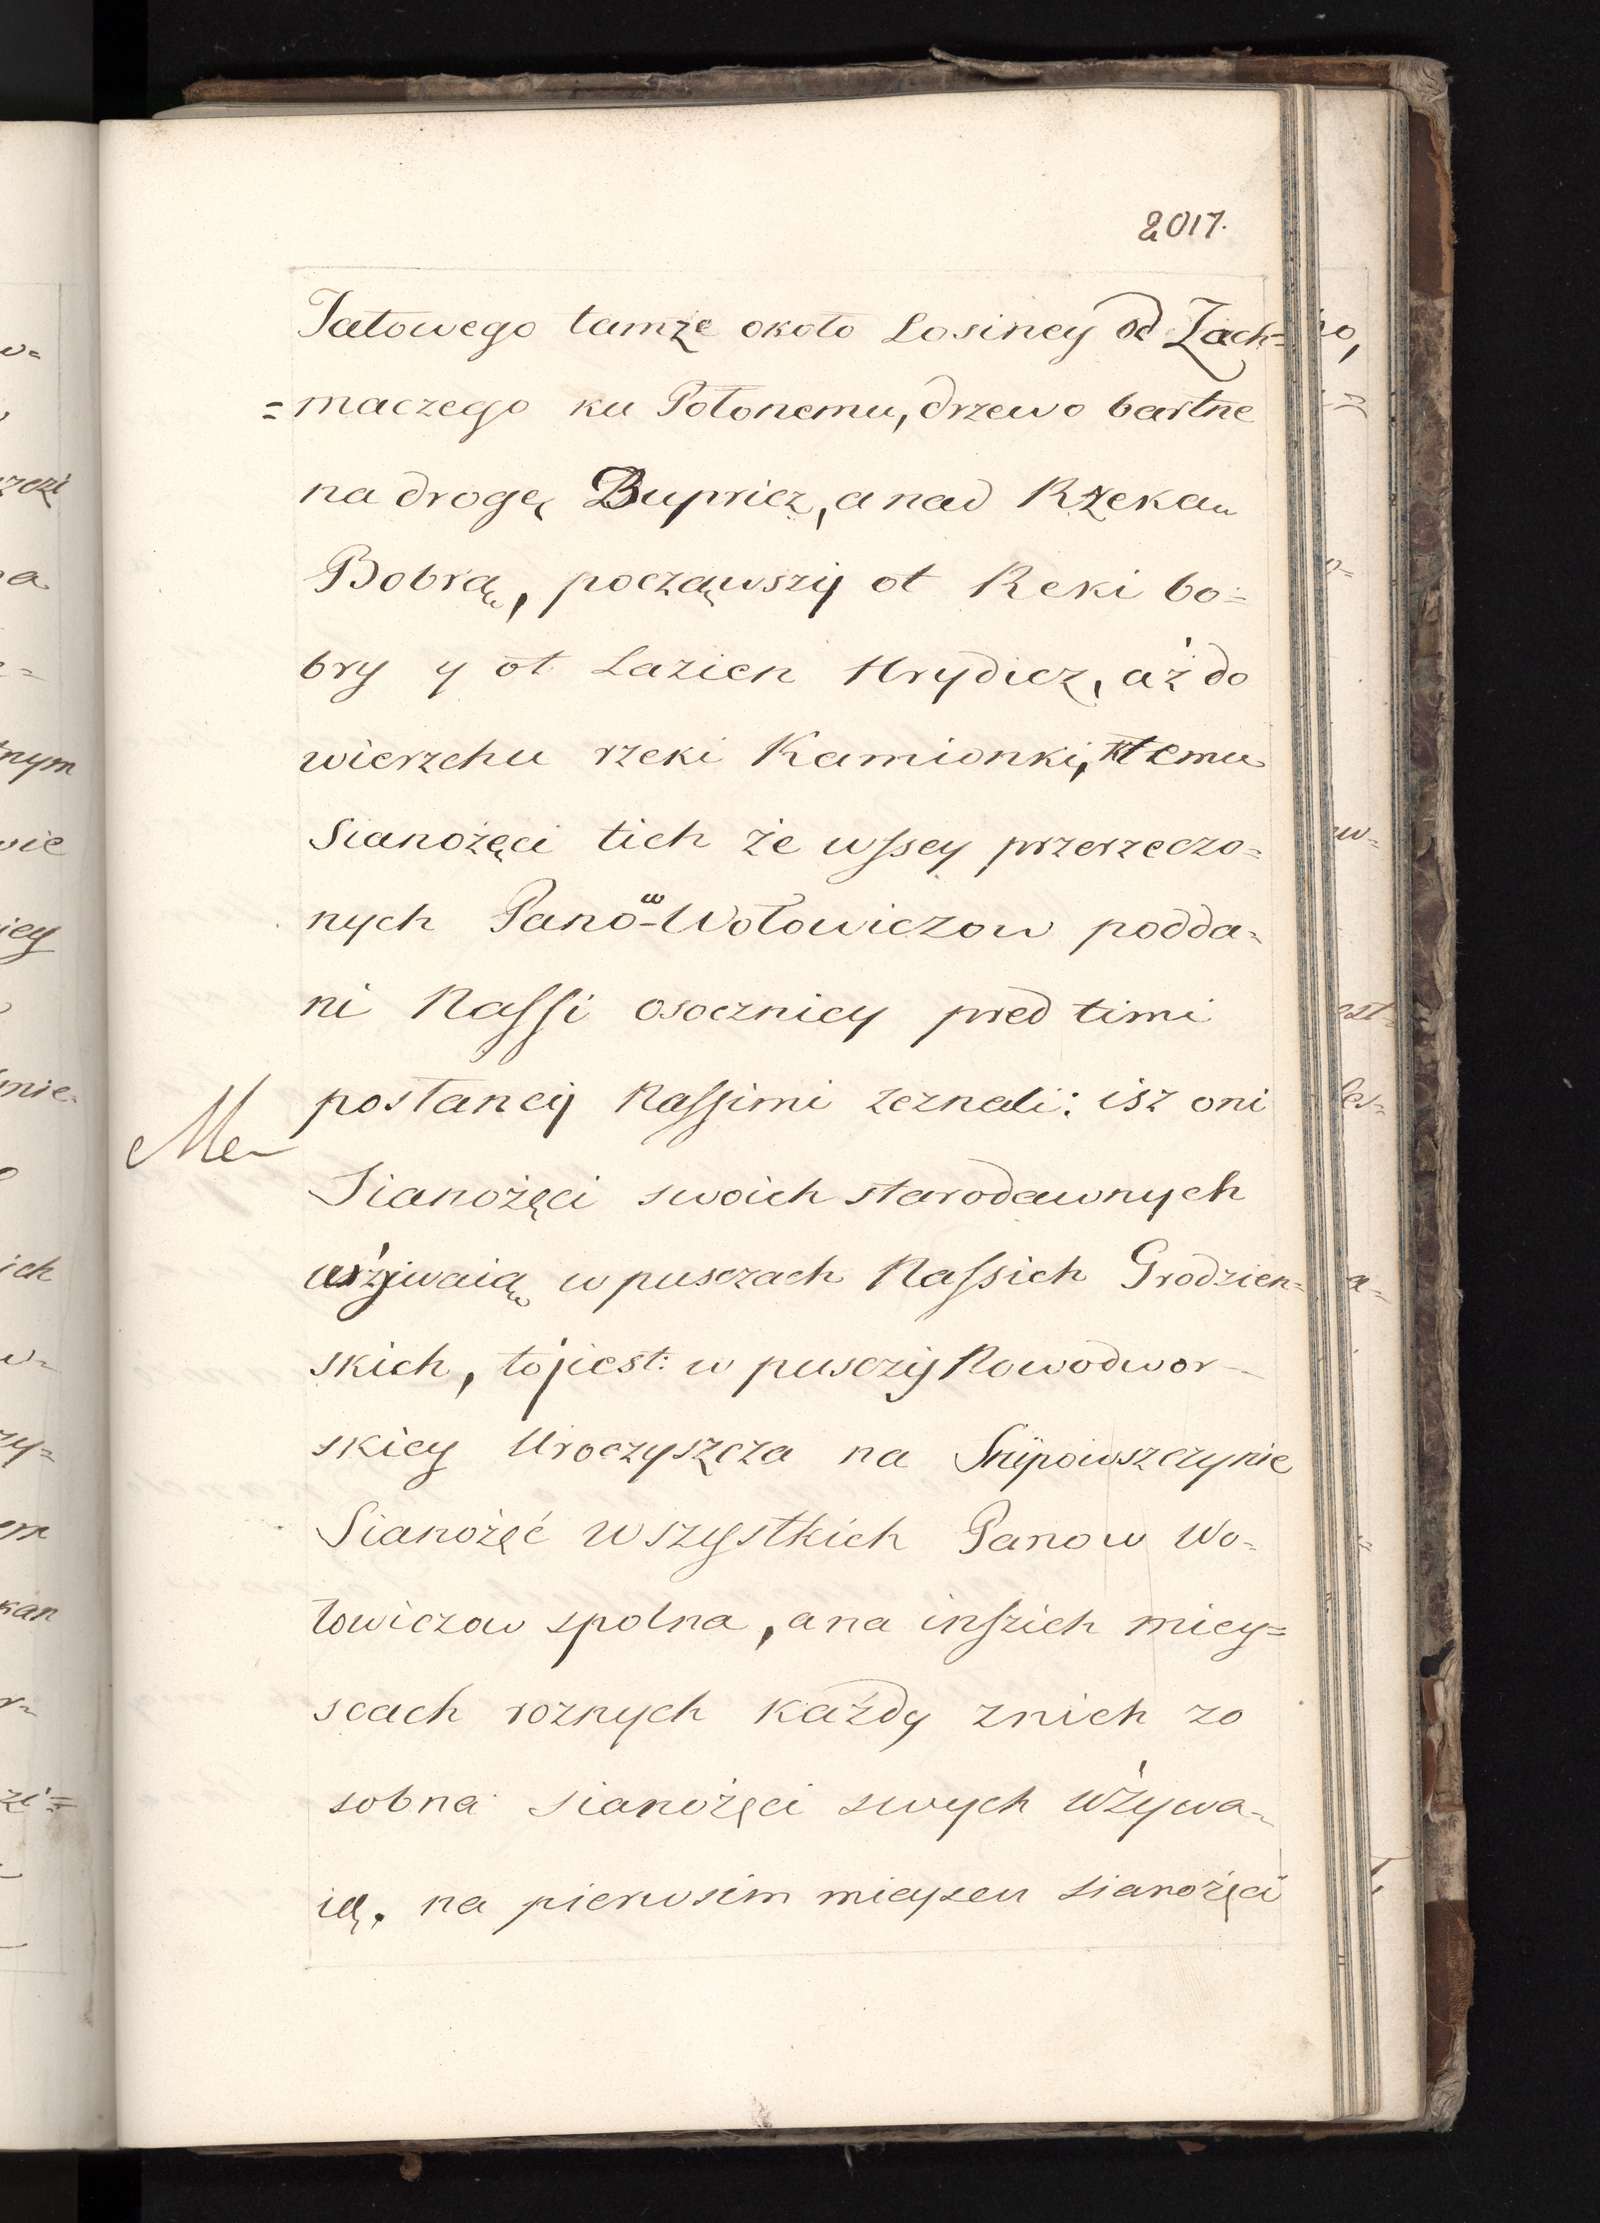 2017.
Jatowego tamże około Łosiney od Zach=
=maczego ku Połonemu, drzewo bartne
na drogę Bupricz, a nad Rżeką
Bobrą, począwszÿ ot Reki bo=
bry y ot Lazien Hrydicz, aż do
wierzchu rzeki Kamionki, k temu
Sianożęci tich że wssey przerzeczo=
nych Panow Wołowiczow podda=
ni Nassi osocznicy pred timi
posłancÿ Nassimi zeznali: isz oni
Sianożęci swoich starodawnych
użÿwaią w pusczach Nassich Grodzien=
skich, to jiest: w pusczÿ Nowodwor=
skiey Uroczyszcza na
Sianożęć wszystkich Panow Wo=
łowiczow spolna, a na inszich miey=
scach roznych każdy z nich zo
sobna sianożęci swych używa=
ią. na pierwsim mieyscu sianożęci